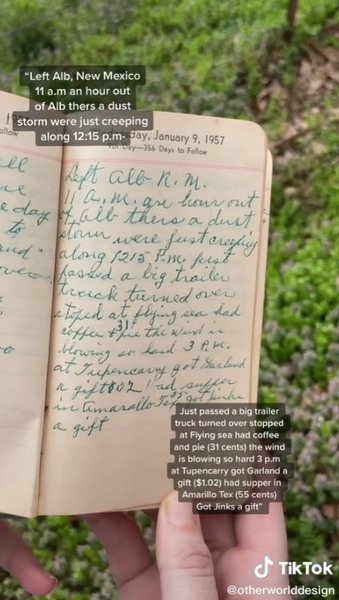 “Left Alb, New Mexico
11 a.m an hour out
of Alb thers a dust
storm were just creeping
along 12:15 p.m-
day, January 9, 1957
Day—356 Days to Follow
Left Alb N.M.
11 A.M. an hour out
of Alb thers a dust
storm were just creeping
along 1215 P.M. just
passed a big trailer
truck turned over
stoped at flying sea had
coffee & pie 31 the wind is
blowing so hard 3 P.M.
at Tupencarry got Garland
a gift 102 Had supper
in Amarallo Tex 55 got Jinks
a gift
ollow
day
to
over
Just passed a big trailer
truck turned over stopped
at Flying sea had coffee
and pie (31 cents) the wind
is blowing so hard 3 p.m
at Tupencarry got Garland a
gift ($1.02) had supper in
Amarillo Tex (55 cents)
Got Jinks a gift”
TikTok
@otherworlddesign